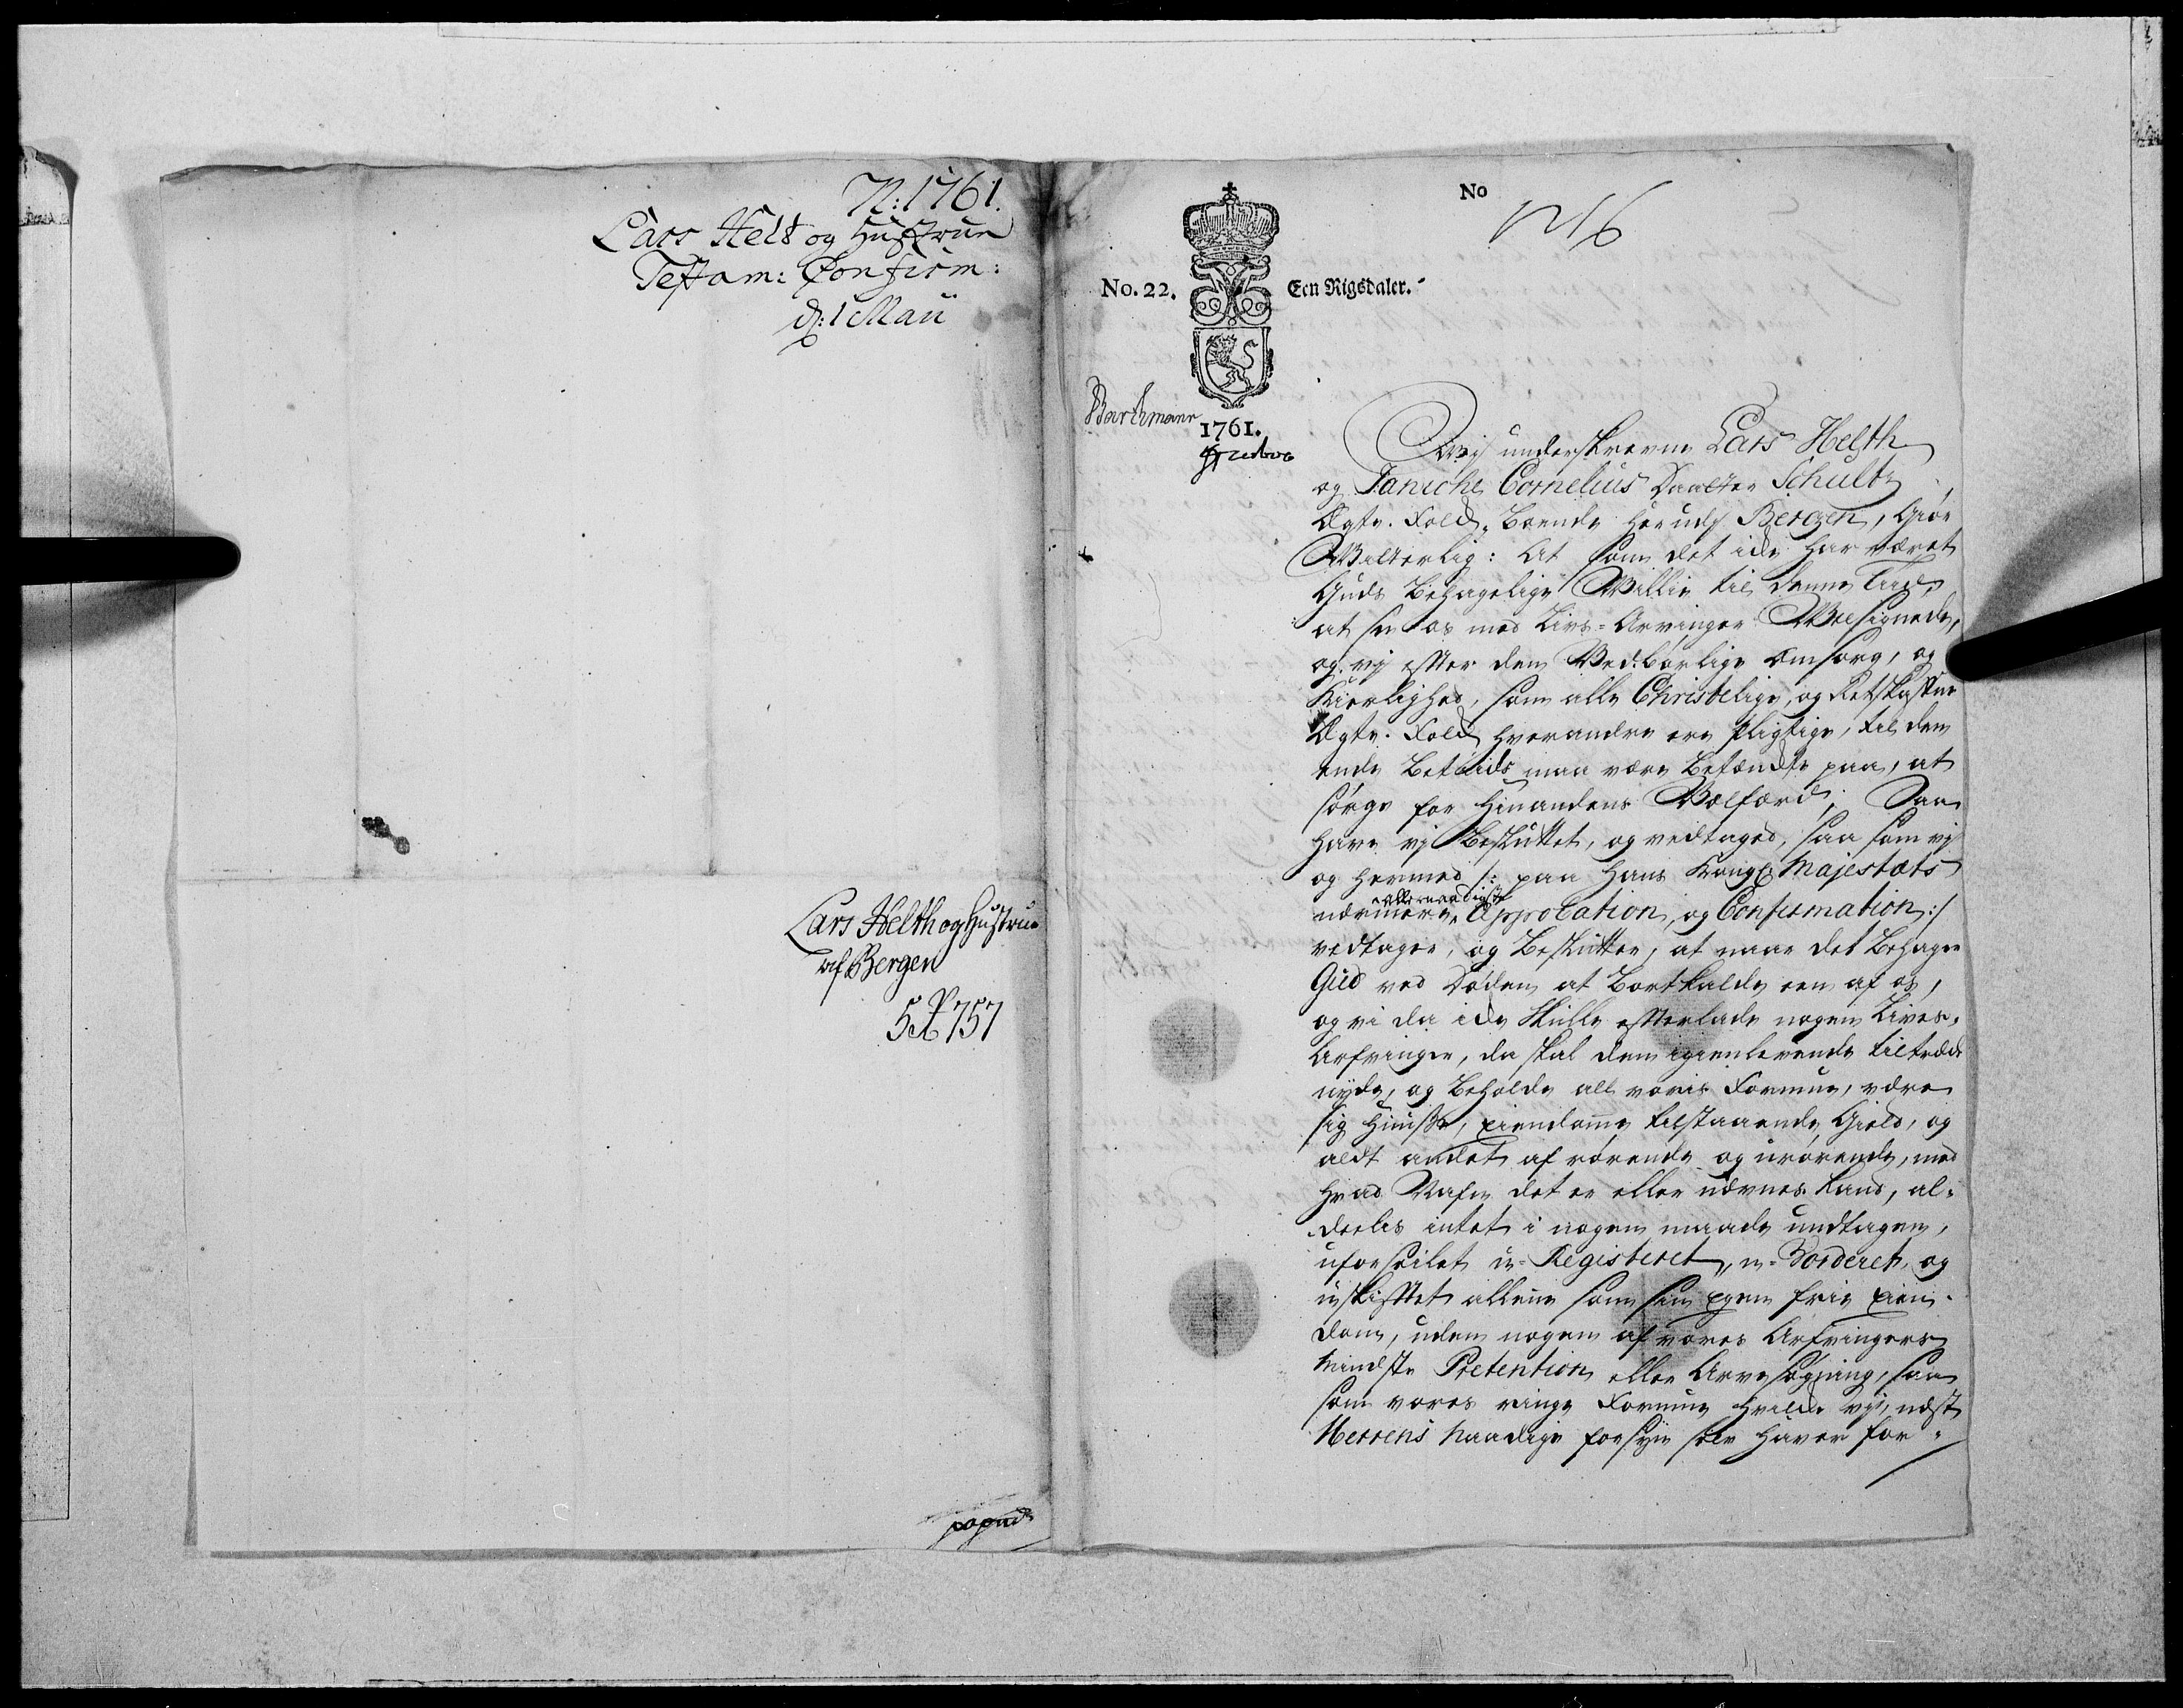 N: 1761.
Lars Helt og Hustrue
Testam: Confirm:
d: 1 Maii
Lars Helth og Hustrue
af Bergen
757
No
No. 22.
Een Rigsdaler.
1761.
Vij underskrevne Lars Helth
og Janiche Cornelius Daatter Schultz
Ægte-Folk, boende her udj Bergen, Giør
Vitterlig: At som det icke har været
Guds Behagelige Villie til denne Tiid,
at see os med Livs-Arvinger Velsignede,
og vij efter den Ved-børlige Omsorg, og
Kierlighed, som alle Christelige, og Retskafne
Ægte-Folk hverandre ere pligtige, til den
ende betids maa være betænckte paa, at
sørge for hinandens Velfærd; Saa
have vj Besluttet, og vedtaged, saa som vj
og hermed /: paa Hans Kongl: Majestæts
allernaadigste
nærmere Approbation, og Confirmation :/
vedtager, og Beslutter, at naar det behager
Gud ved Døden at Bortkalde een af os,
og vi da icke skulle efterlade nogen Livs-
Arfvinger, da skal den igienlevende tiltræde
nyde, og beholde all voris Formue, være
sig Huuse, Eiendomme tilstaaende Gield, og
aldt andet af rørende og urørende, med
hvad Nafn det er eller nævnes kand, al-
deeles intet i nogen maade undtagen,
uforseilet u-Registeret, u-Vorderet, og
uskiftet allene som sin egen frie Eien-
dom, uden nogen af vores Arfvingers
mindste Pretention eller Arve søgning, saa
som vores ringe Formue hvilcke vj, næst
Herrens Naadige forsyn selv haver for-